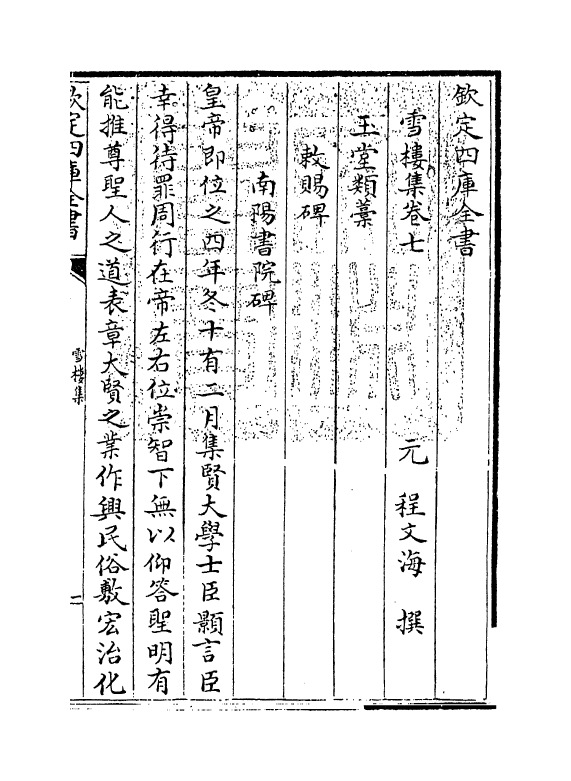 欽定四庫全書
雪樓集卷七 元 程文海 撰
玉堂類藁
敕賜碑
南陽書院碑
皇帝即位之四年冬十有二月集賢大學士臣顥言臣
幸得待罪周行在帝左右位崇智下無以仰答聖明有
能推尊聖人之道表章大賢之業作興民俗敷宏治化
欽定四庫全書
雪樓集